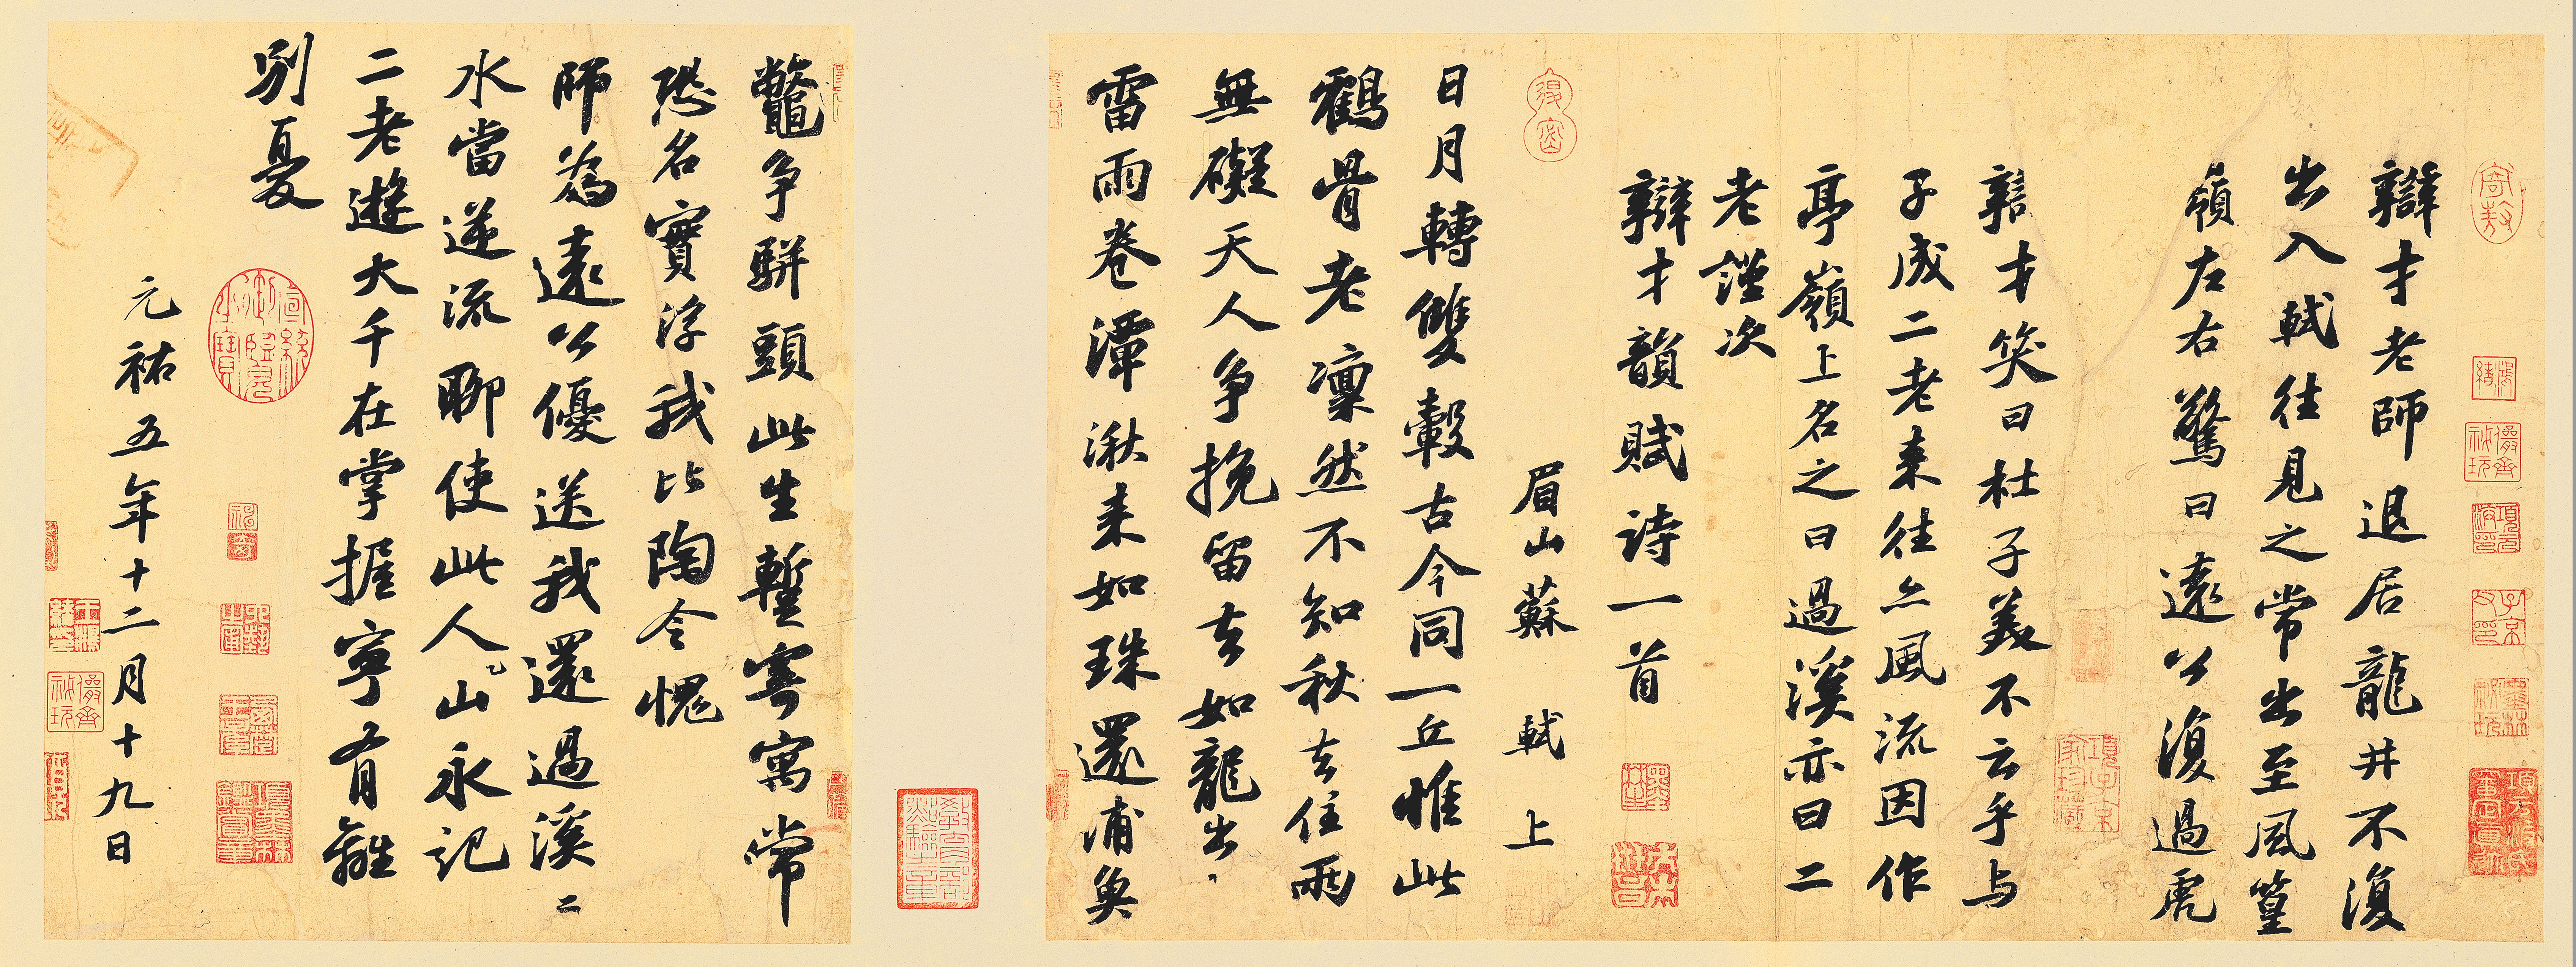 辯才老師退居龍井不復
出入軾往見之常出至風篁
嶺左右驚曰遠公復過虎
辯才笑曰杜子美不云乎与
子成二老来往亦風流因作
亭嶺上名之曰過溪亦曰二
老謹次
辯才韻賦詩一首
眉山蘇軾上
日月轉雙轂古今同一丘惟此
鶴骨老凛然不知秋去住兩
無礙天人争挽留去如龍出
雷雨卷潭湫来如珠還浦魚
鼈争駢頭此生暫寄寓常
恐名實浮我比陶令愧
師為遠公優送我還過溪二
水當逆流聊使此人山永記
二老遊大千在掌握寧有離
別憂
元祐五年十二月十九日